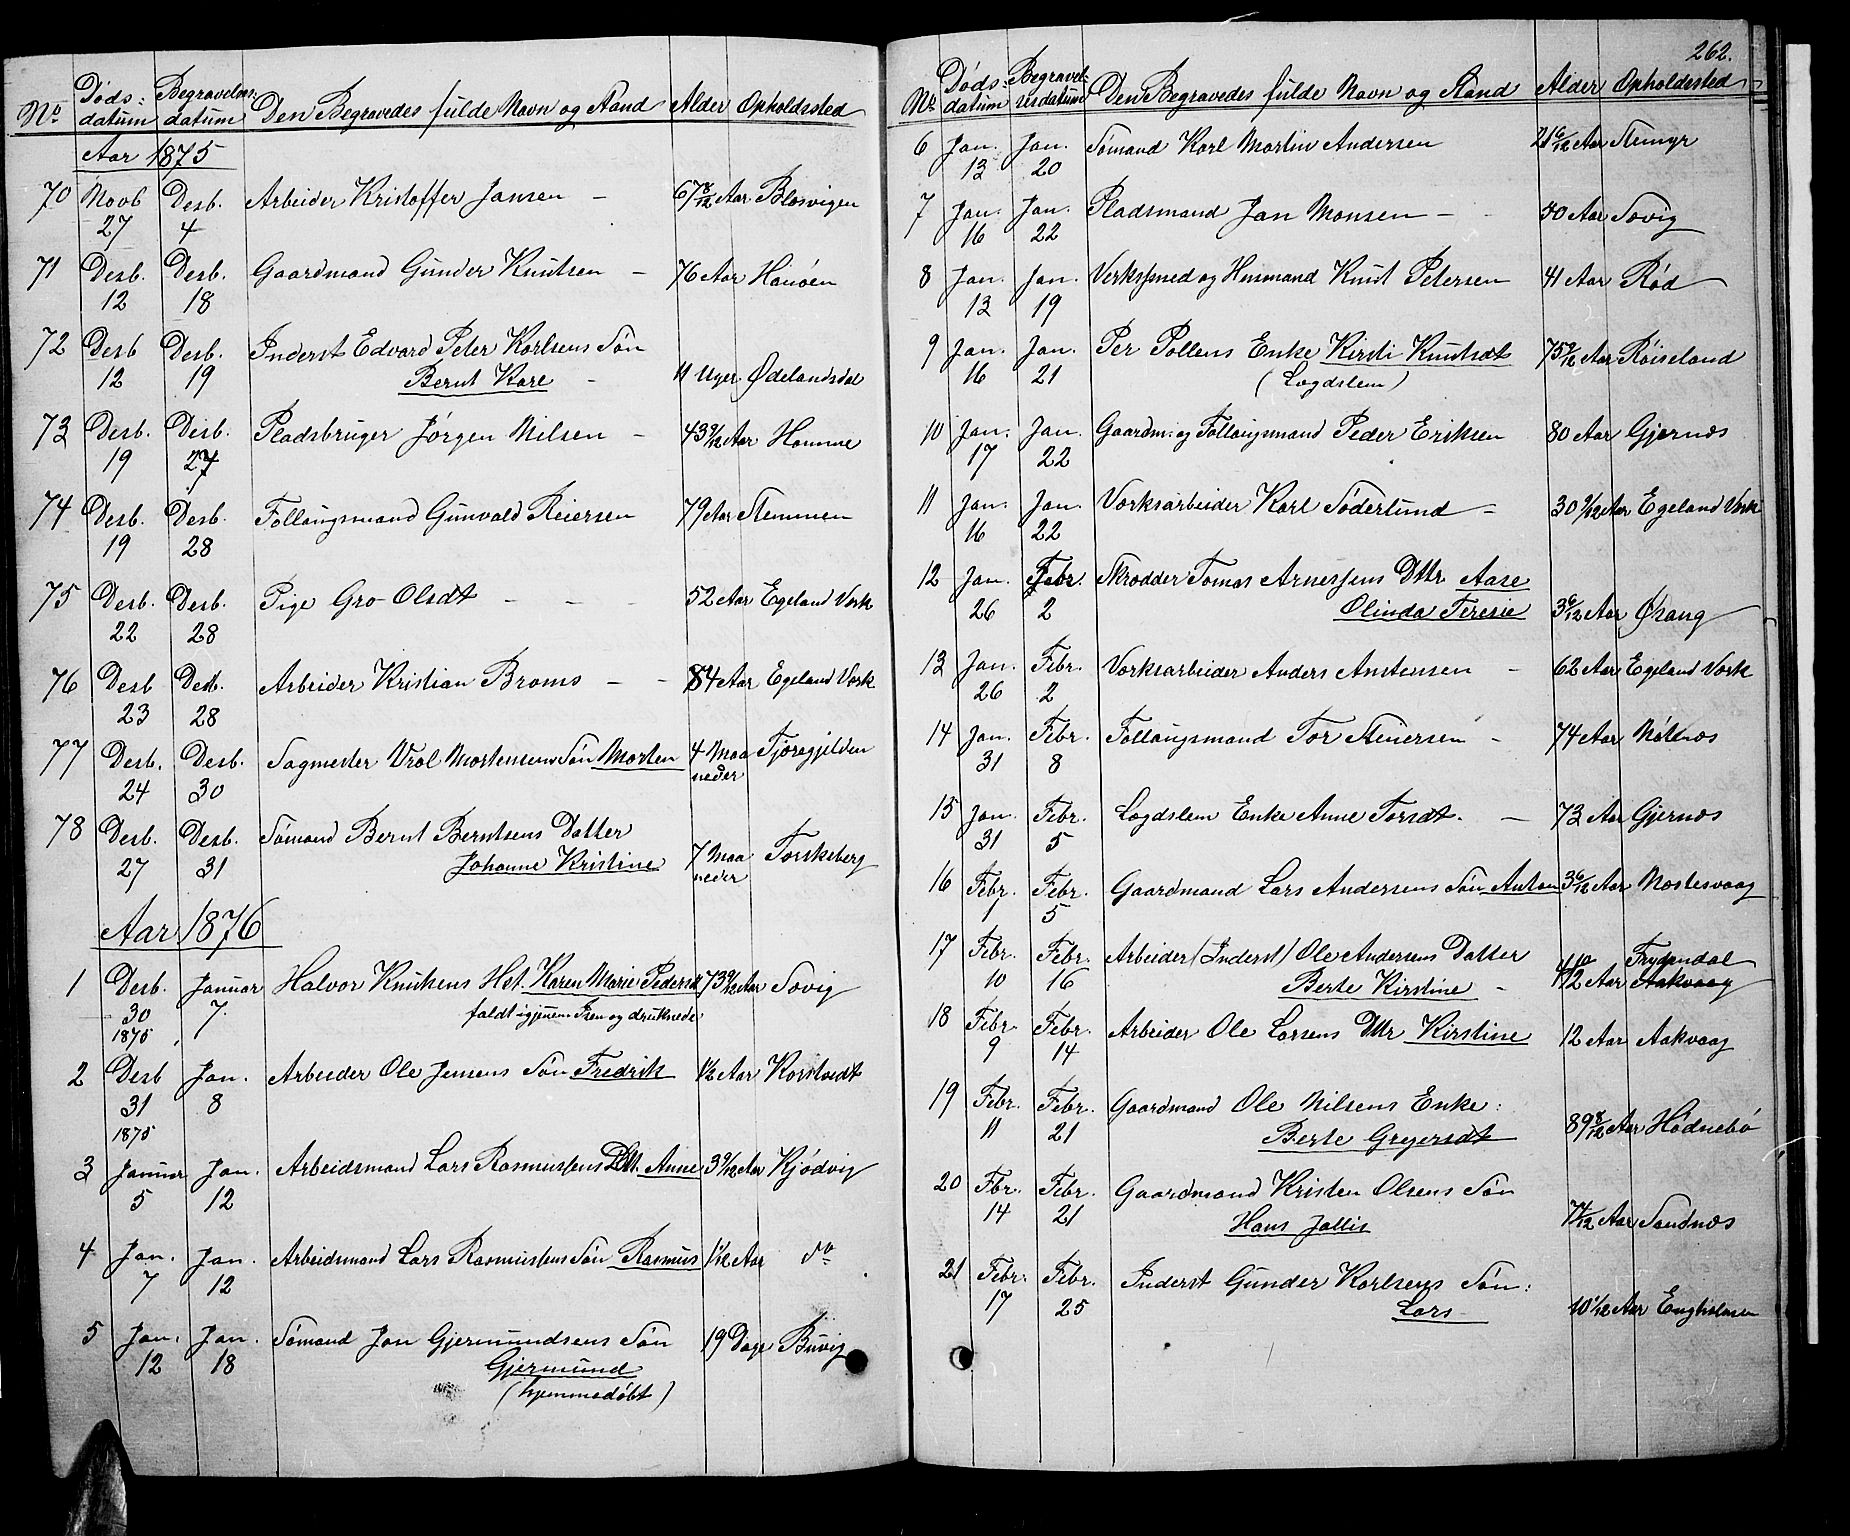 No Døds- datum Begravelses- datum Den Begravedes fulde Navn og Stand Alder Opholdssted
Aar 1875
70 Novb 27 Desb. 4 Arbeider Kristoffer Jansen – 67 8/12 Aar Blosvigen
71 Desb. 12 Desb. 18 Gaardmand Gunder Knutsen – 76 Aar Hanøen
72 Desb 12 Desb. 19 Inderst Edvard Peter Karlsens Søn
Bernt Karl – 11 Uger Ødelandsdal
73 Desb. 19 Desb. 27 Pladsbruger Jørgen Nilsen – 43 9/12 Aar Homme
74 Desb. 19 Desb. 28 Follaugsmand Gunvald Reiersen 79 Aar Stemmen
75 Desb. 22 Desb. 28 Pige Gro Olsdt – – – 52 Aar Egeland Værk
76 Desb 23 Desb. 28 Arbeider Kristian Broms – – 84 Aar Egeland Værk
77 Desb. 24 Desb. 30 Sagmester Vrol Mortensens Søn Morten 4 Maa neder
78 Desb. 27 Desb. 31 Sømand Bernt Berntsens Datter
Johanne Kristine 7 Maa neder Torskeberg
Aar 1876
1 Desb. 30 1875 Januar 7 Halvor Knutsens Hst. Karen Marie Pedersdt 73 9/12 Aar Søvig
faldt igjennem Isen og druknede
2 Desb 31 1875 Jan. 8 Arbeider Ole Jensens Søn Fredrik 1/2 Aar Korstvedt
3 Januar 5 Jan. 12 Arbeidsmand Lars Rasmussens Dtt. Anne 3 9/12 Aar Kjødvig
4 Jan. 7 Jan. 12 Arbeidsmand Lars Rasmussens Søn Rasmus 1 1/12 Aar do
5 Jan. 12 Jan. 18 Sømand Jan Gjermundsens Søn 19 Dage Buvig
Gjermund
(hjemmedøbt)
262.
Nr Døds- datum Begravel- sesdatum Den Begravedes fulde Navn og Stand Alder Opholdssted
6 Jan. 13 Jan. 20 Sømand Karl Martin Andersen 21 6/12 Aar Stemyr
7 Jan. 16 Jan. 22 Pladsmand Jan Monsen – – 40 Aar Søvig
8 Jan. 13 Jan. 19 Verksmed og Husmand Knut Petersen 41 Aar Rød
9 Jan. 16 Jan. 21 Per Pollens Enke Kirsti Knutsdt 75 9/12 Aar Røiseland
(Lægdslem)
10 Jan. 17 Jan. 22 Gaardm. og Follaugsmand Peder Eriksen 80 Aar Gjernæs
11 Jan. 16 Jan. 22 Værksarbeider Karl Søderlund – 30 9/12 Aar Egeland Værk
12 Jan. 26 Febr. 2 Skrædder Tomas Arnessens Dttr Aase
Olinda Teresie 3 6/12 Aar Øvang
13 Jan. 26 Febr. 2 Værksarbeider Anders Anstensen – 62 Aar Egeland Værk
14 Jan. 31 Febr. 8 Follaugsmand Tor Steiersen – 74 Aar
15 Jan. 31 Febr. 5 Lægdslem Enke Anne Torsdt. – 73 Aar Gjernæs
16 Febr. 1 Febr. 5 Gaardmand Lars Andersens Søn Anton 3 6/12 Aar Mostesvaag
17 Febr. 10 Febr. 16 Arbeider (Inderst) Ole Andersens Datter Frydendal
Berte Kirstine – 4 10/12 Aar Aakvaag
18 Febr. 9 Febr. 14 Arbeider Ole Larsens Dttr Kirstine 12 Aar Aakvaag
19 Febr. 11 Febr. 21 Gaardmand Ole Nilsens Enke:
Berte Gregersdt 89 8/12 Aar Hødnebø
20 Fbr. 14 Febr. 21 Gaardmand Kristen Olsens Søn
Hans Jallis 7 4/12 Aar Sandnæs
21 Febr. 17 Febr. 25 Inderst Gunder Karlsens Søn:
Lars 10 1/12 Aar Engholmen